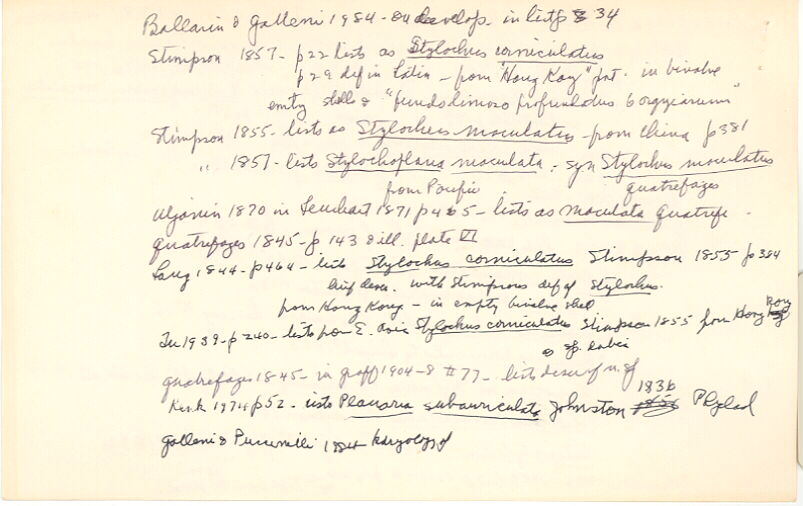 Ballarin & Galleni 1984 - on develop. in listg 34
Stimpson 1857 - p22 lists as Stylochus corniculatus
p29 def in Latin - from "Hong Kong" pat. in bivalve
empty shells & "fundo limoso profunditatis 6 orgyiarum"
Stimpson 1855 - lists as Stylochus maculatus - from China p381
" 1857 - lists Stylochoplana maculata - syn Stylochus maculatus
from Pacific quatrefages
Uljanin 1870 in Leuckart 1871 p465 - lists as maculata Quatrefe.
Quatrefages 1845 - p 143 & ill. plate VI
Lang 1844 - p464 - lists Stylochus corniculatus Stimpson 1855 p384
brief descr. with Stimpsons def of Stylochus.
from Hong Kong - in empty bivalve shell
1939 - p 240 - lists from E. Asia Stylochus corniculatus Stimpson 1855 from Hong Kong
Quatrefages 1845 - in Graff 1904-8 #77 - lists descr of n. of
Kenk 1974 p52 - lists Planaria subauriculata Johnston 1836 Phylad
Galleni & Puccinelli 1984 karyology of